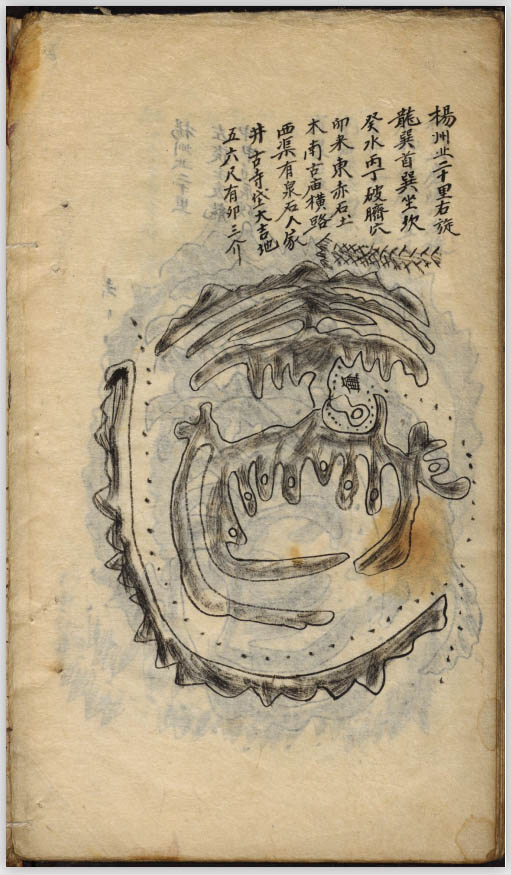 楊州北二十里右旋
龍巽首巽坐坎
癸水丙丁破臍穴
卯来東赤石土
木南古庙橫路
西渠有泉石人家
井古寺 大吉地
五六尺有卯三介